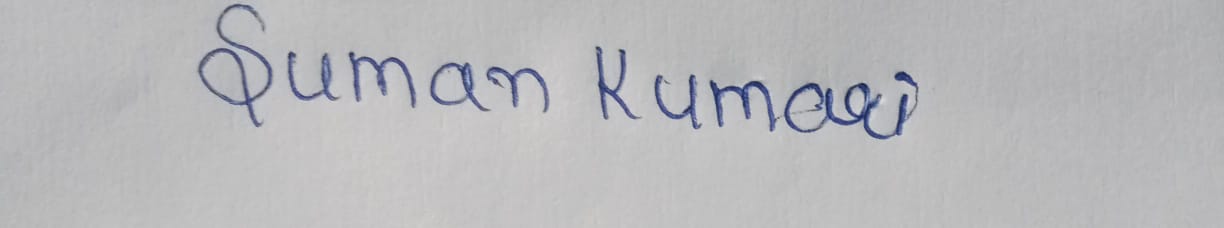 Suman Kumari